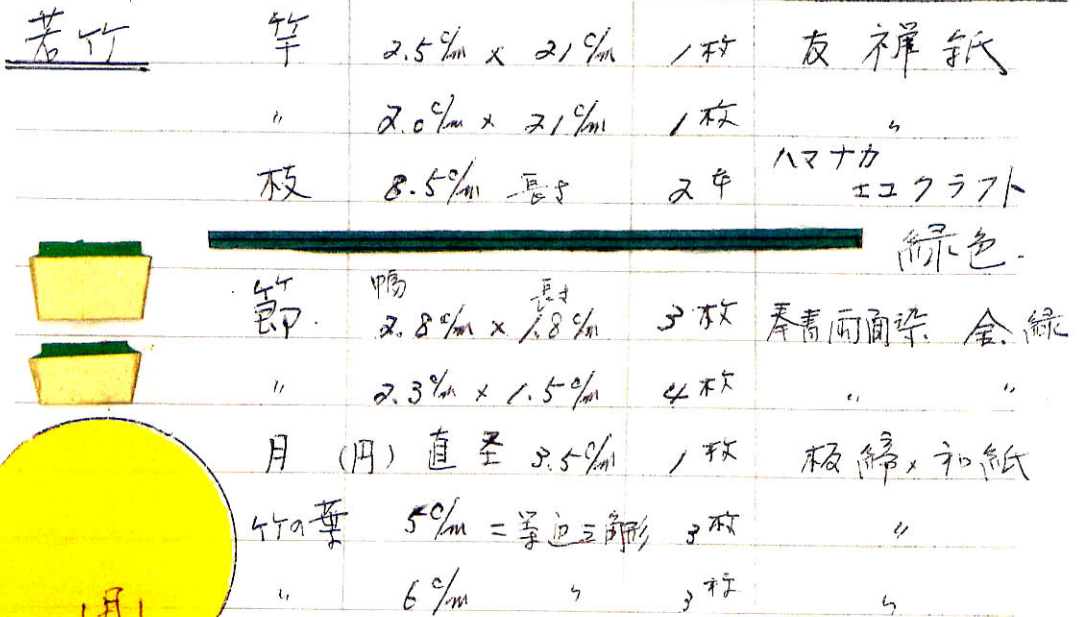 若竹 竿 2.5c/m × 21c/m 1枚 友禅紙
〃 2.0c/m × 21c/m 1枚 〃
枝 8.5c/m 長さ 2本 ハマナカ
エコクラフト
緑色.
節. 幅 2.8c/m × 長さ 1.8c/m 3枚 奉書両面染 金.緑
〃 2.3c/m × 1.5c/m 4枚 〃 〃
月 (円) 直圣 3.5c/m 1枚 板締メ和紙
竹の葉 5c/m 二等辺三角形 3枚 〃
〃 6c/m 〃 3枚 〃
月